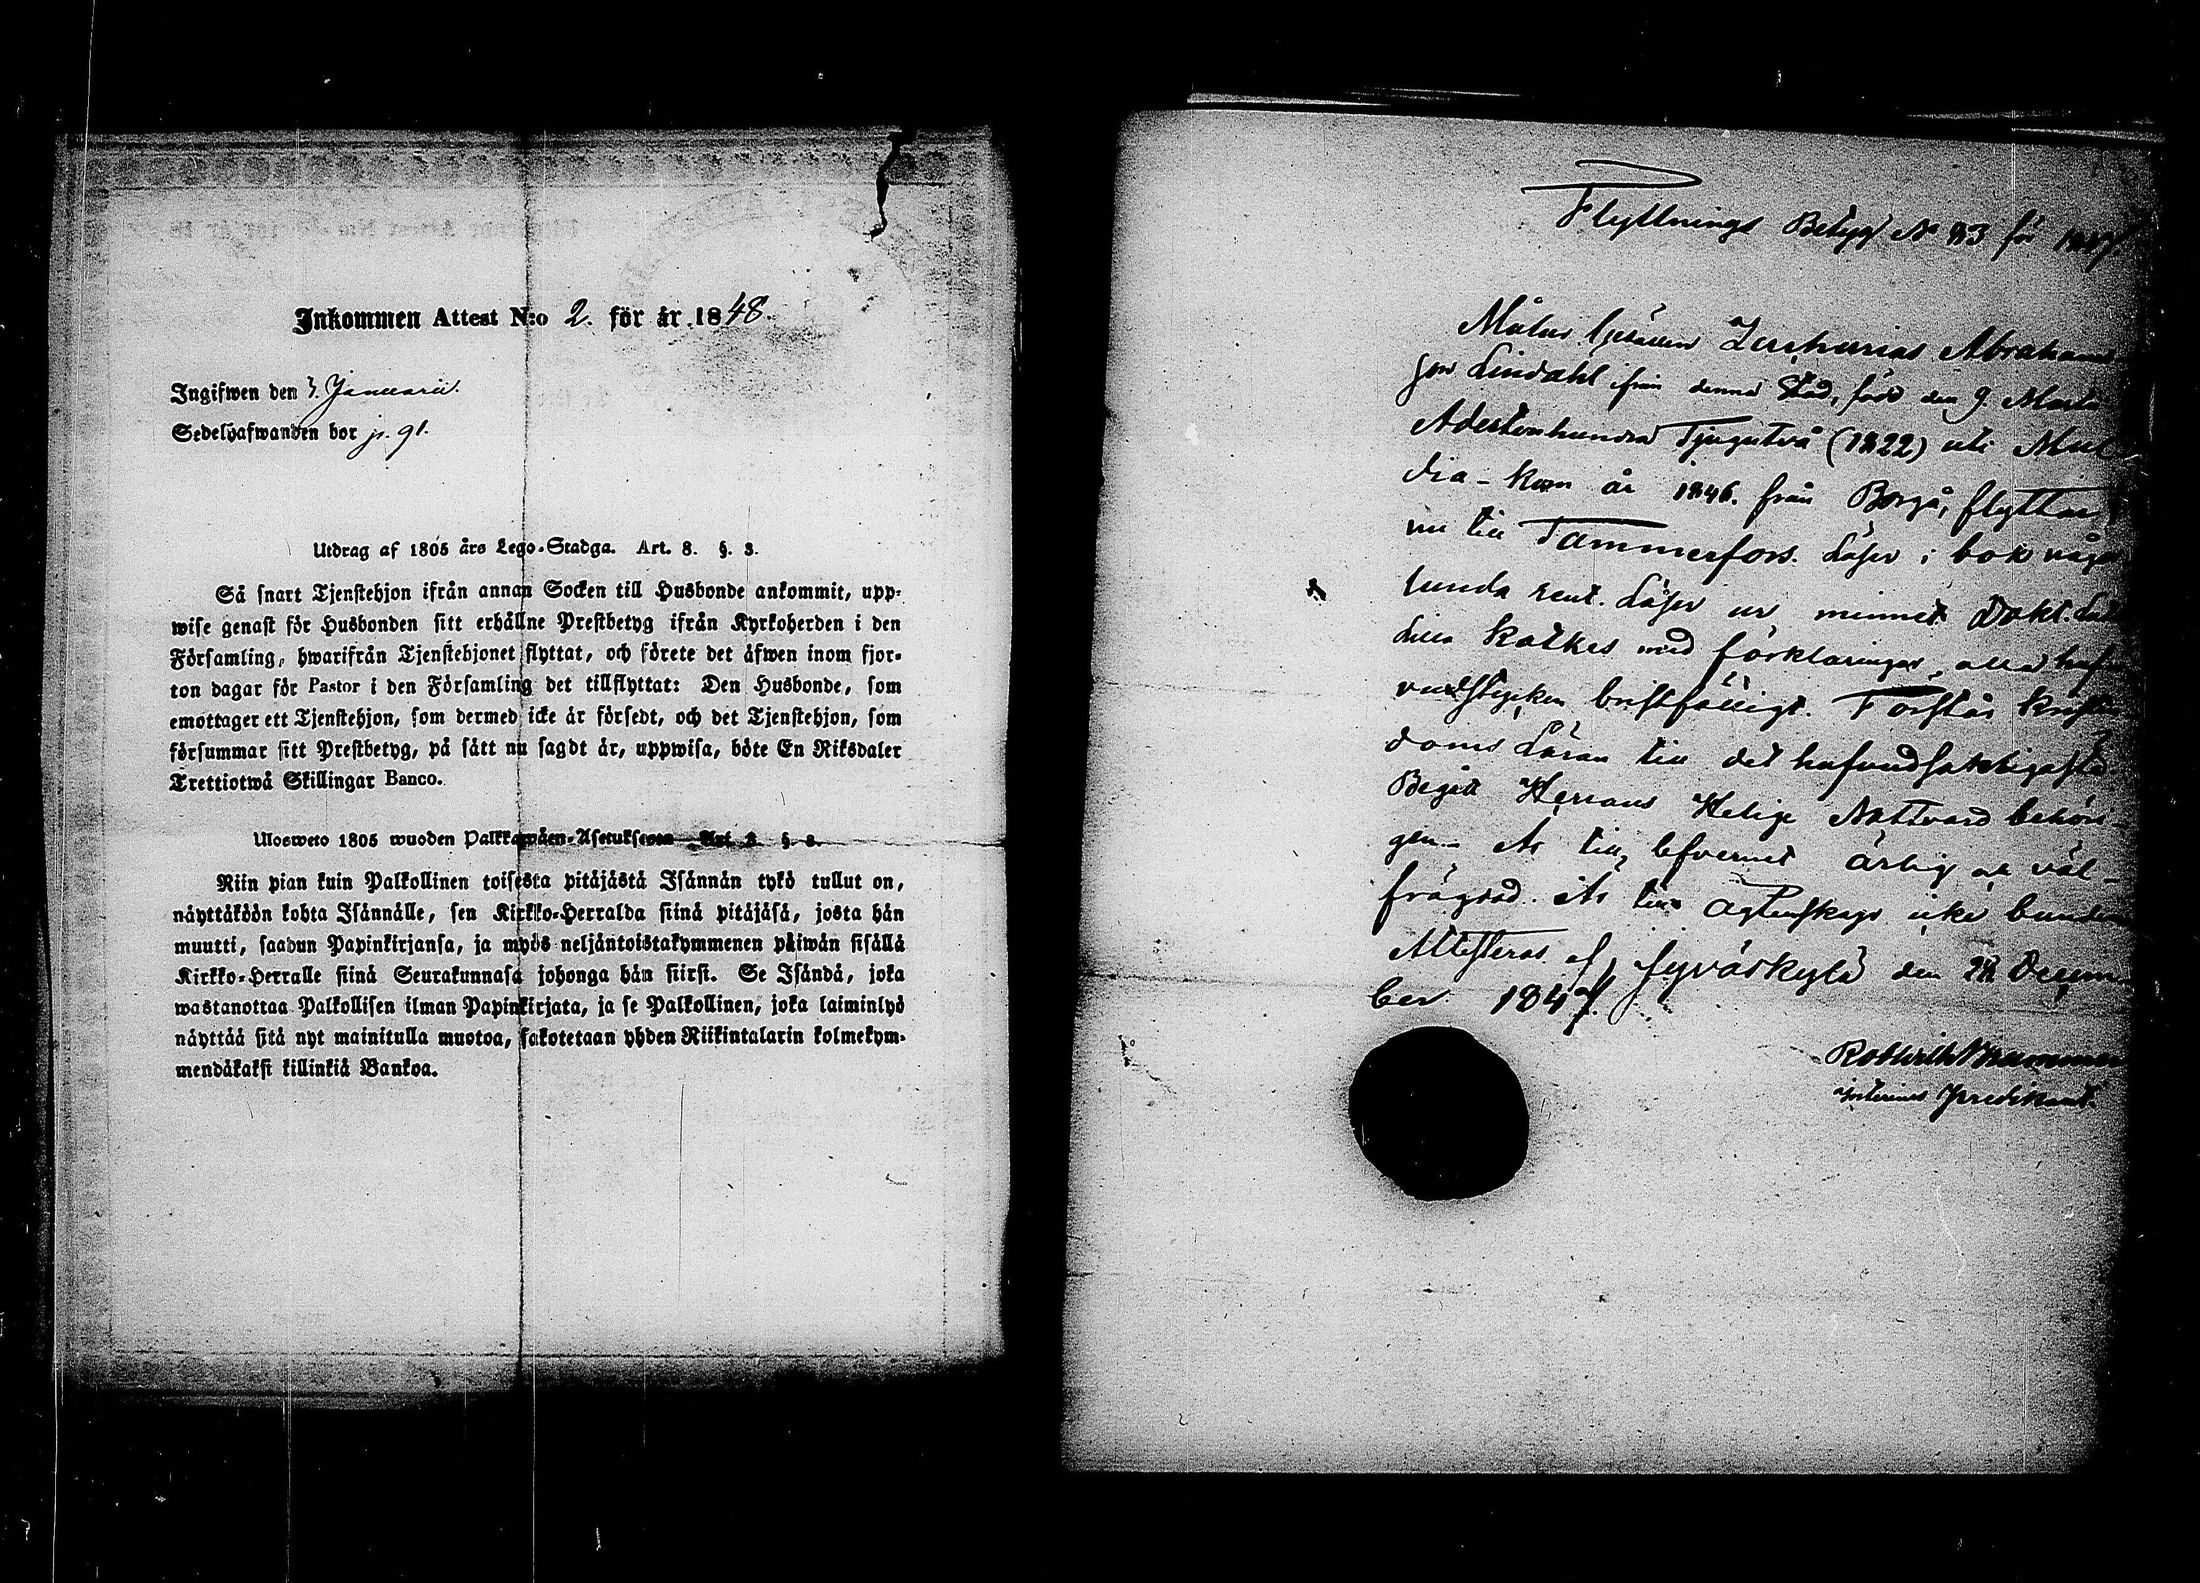 Inkommen Attest N:o 2. för år 1848.
Ingifwen den 3. Januarii.
Sedelhafwanden bor p. 91.
Utdrag af 1805 års Lego-Stadga. Art. 8. §. 3.
Så snart Tjenstehjon ifrån annan Socken till Husbonde ankommit, upp-
wise genast för Husbonden sitt erhållne Prestbetyg ifrån Kyrkoherden i den
Församling, hwarifrån Tjenstehjonet flyttat, och förete det äfwen inom fjor-
ton dagar för Pastor i den Församling det tillflyttat: Den Husbonde, som
emottager ett Tjenstehjon, som dermed icke är försedt, och det Tjenstehjon, som
försummar sitt Prestbetyg, på sätt nu sagdt är, uppwisa, böte En Riksdaler
Trettiotwå Skillingar Banco.
Ulosweto 1805 wuoden Palkkawäen-Asetuksesta Art. 8. §. 3.
Niin pian kuin Palkollinen toisesta pitäjästä Isännän tykö tullut on,
näyttäköön kohta Isännälle, sen Kirkko-Herralda siinä pitäjäsä, josta hän
muutti, saadun Papinkirjansa, ja myös neljäntoistakymmenen päiwän sisällä
Kirkko-Herralle siinä Seurakunnasa johonga hän siirsi. Se Isändä, joka
wastanottaa Palkollisen ilman Papinkirjata, ja se Palkollinen, joka laiminlyö
näyttää sitä nyt mainitulla muotoa, sakotetaan yhden Riikintalarin kolmekym-
mendäkaksi killinkiä Bankoa.
Flyttnings Betyg N 83 för 1847.
Målare Gesällen Zacharias Abrahams-
son Lindahl från denna Stad, född den 9. Martii
Adertonhundra Tjugutvå (1822) uti
dia - kom år 1846. från Borgå, flyttar
nu till Tammerfors. Läser i bok någor
lunda rent. Läser ur minnet Dokt.
lilla Katkes med förklaringar, alla huf
vudstycken bristfälligt. Förstår Kristen
doms Läran till det hufvudsakligaste.
Begått Herrans Heliga Nattvard behöri-
gen. - Är till lefvernet ärlig och väl-
frägdad. Är till ägtenskap icke bunden
Attesteras af Jyväskylä den 28 Decem-
ber 1847.
interims predikant.